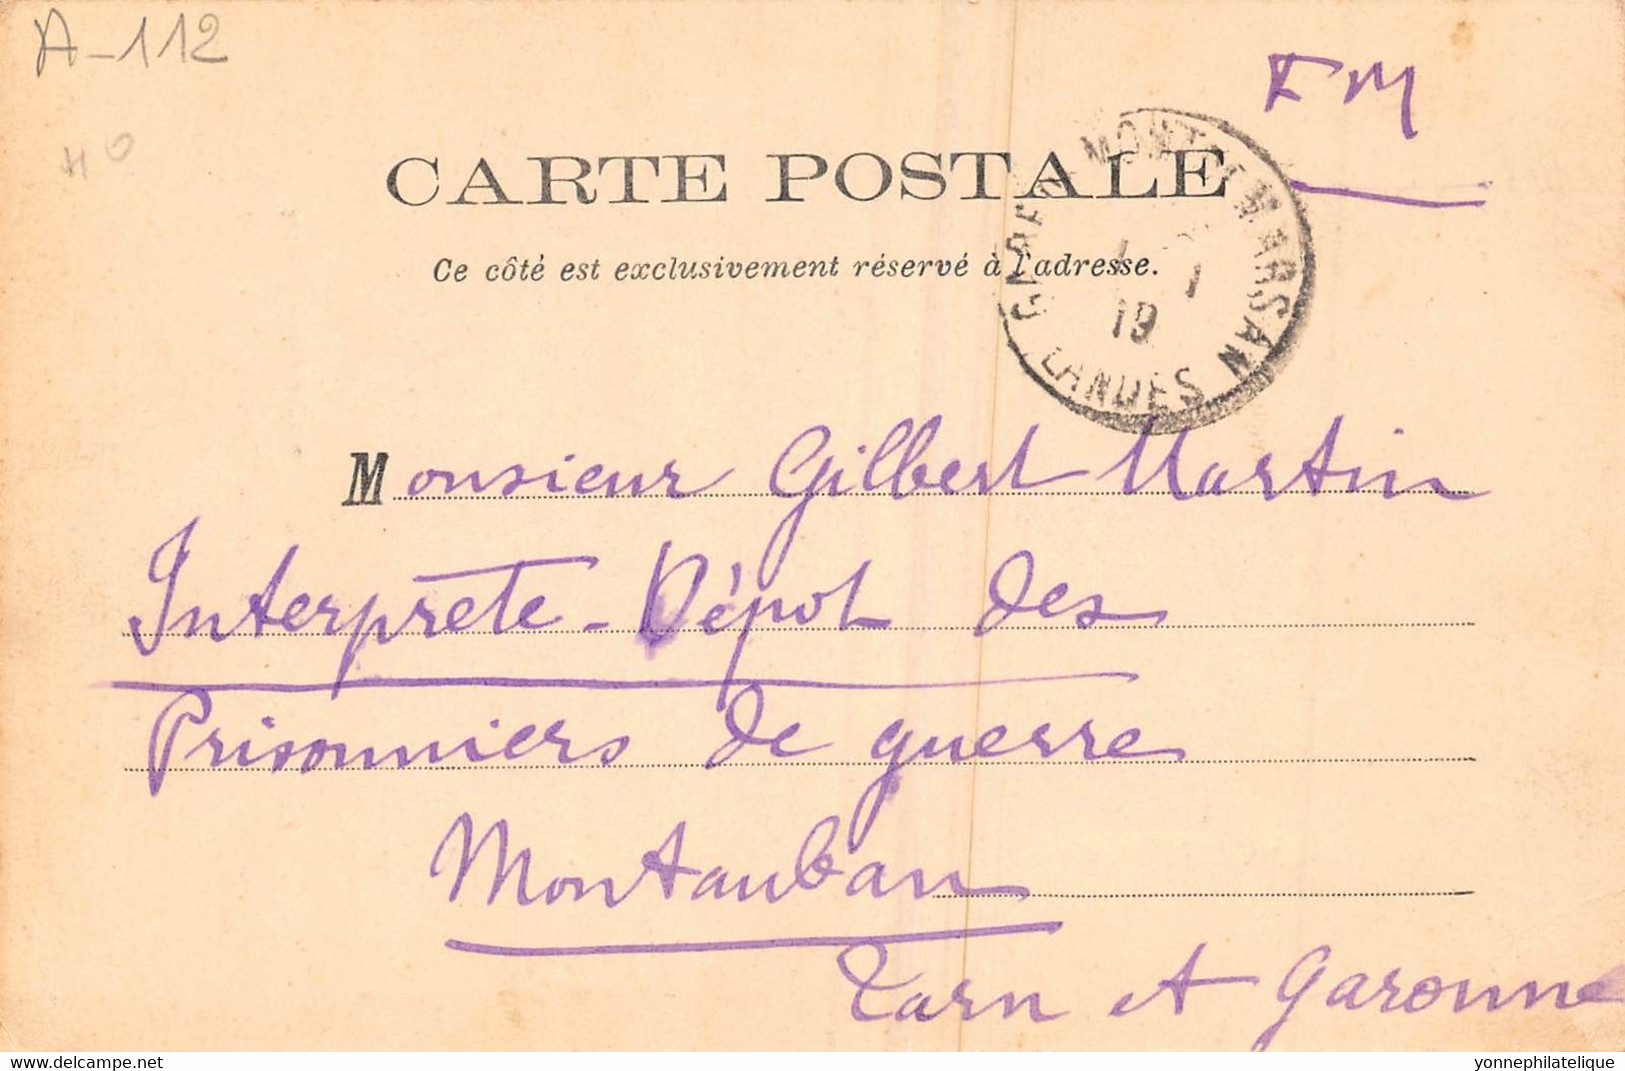 A-112
FM
CARTE POSTALE
Ce côté est exclusivement réservé à l'adresse.
GARE MONT DE MARSAN
1
19
LANDES
Monsieur Gilbert Martin
Interprete - Dépot des
Prisonniers de guerre
Montauban
Tarn et Garonne
delcampe.net
yonnephilatelique